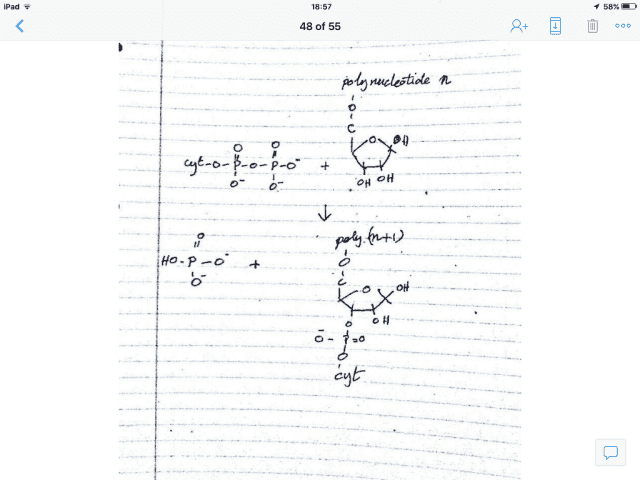 iPad 18:57 58%
48 of 55
polynucleotide n
O
C
O OH
O O
cyt-O-P-O-P-O⁻ +
O⁻ O⁻
OH OH
↓
poly (n+1)
O
O
HO-P-O⁻ +
O⁻
C
O OH
O OH
O⁻-P=O
O
cyt